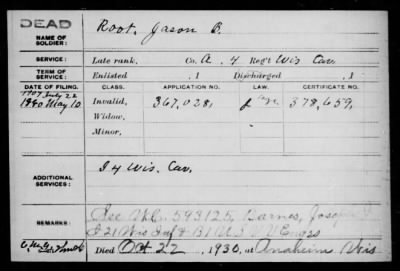 DEAD
NAME OF SOLDIER: Root, Jason B.
SERVICE: Late rank, Co. A. 4 Reg't Wis Cav.
TERM OF SERVICE: Enlisted .1 Discharged .1
DATE OF FILING. CLASS. APPLICATION NO. LAW. CERTIFICATE NO.
1907 July 22
1880 May 10 Invalid, 367,028, 378,659,
Widow,
Minor,
ADDITIONAL SERVICES: I 4 Wis. Cav.
REMARKS: See 593125, Barnes, Joseph
I 21 Wis Inf & B 1 U.S. V V Engrs
Died Oct 22, 1930, at Anaheim